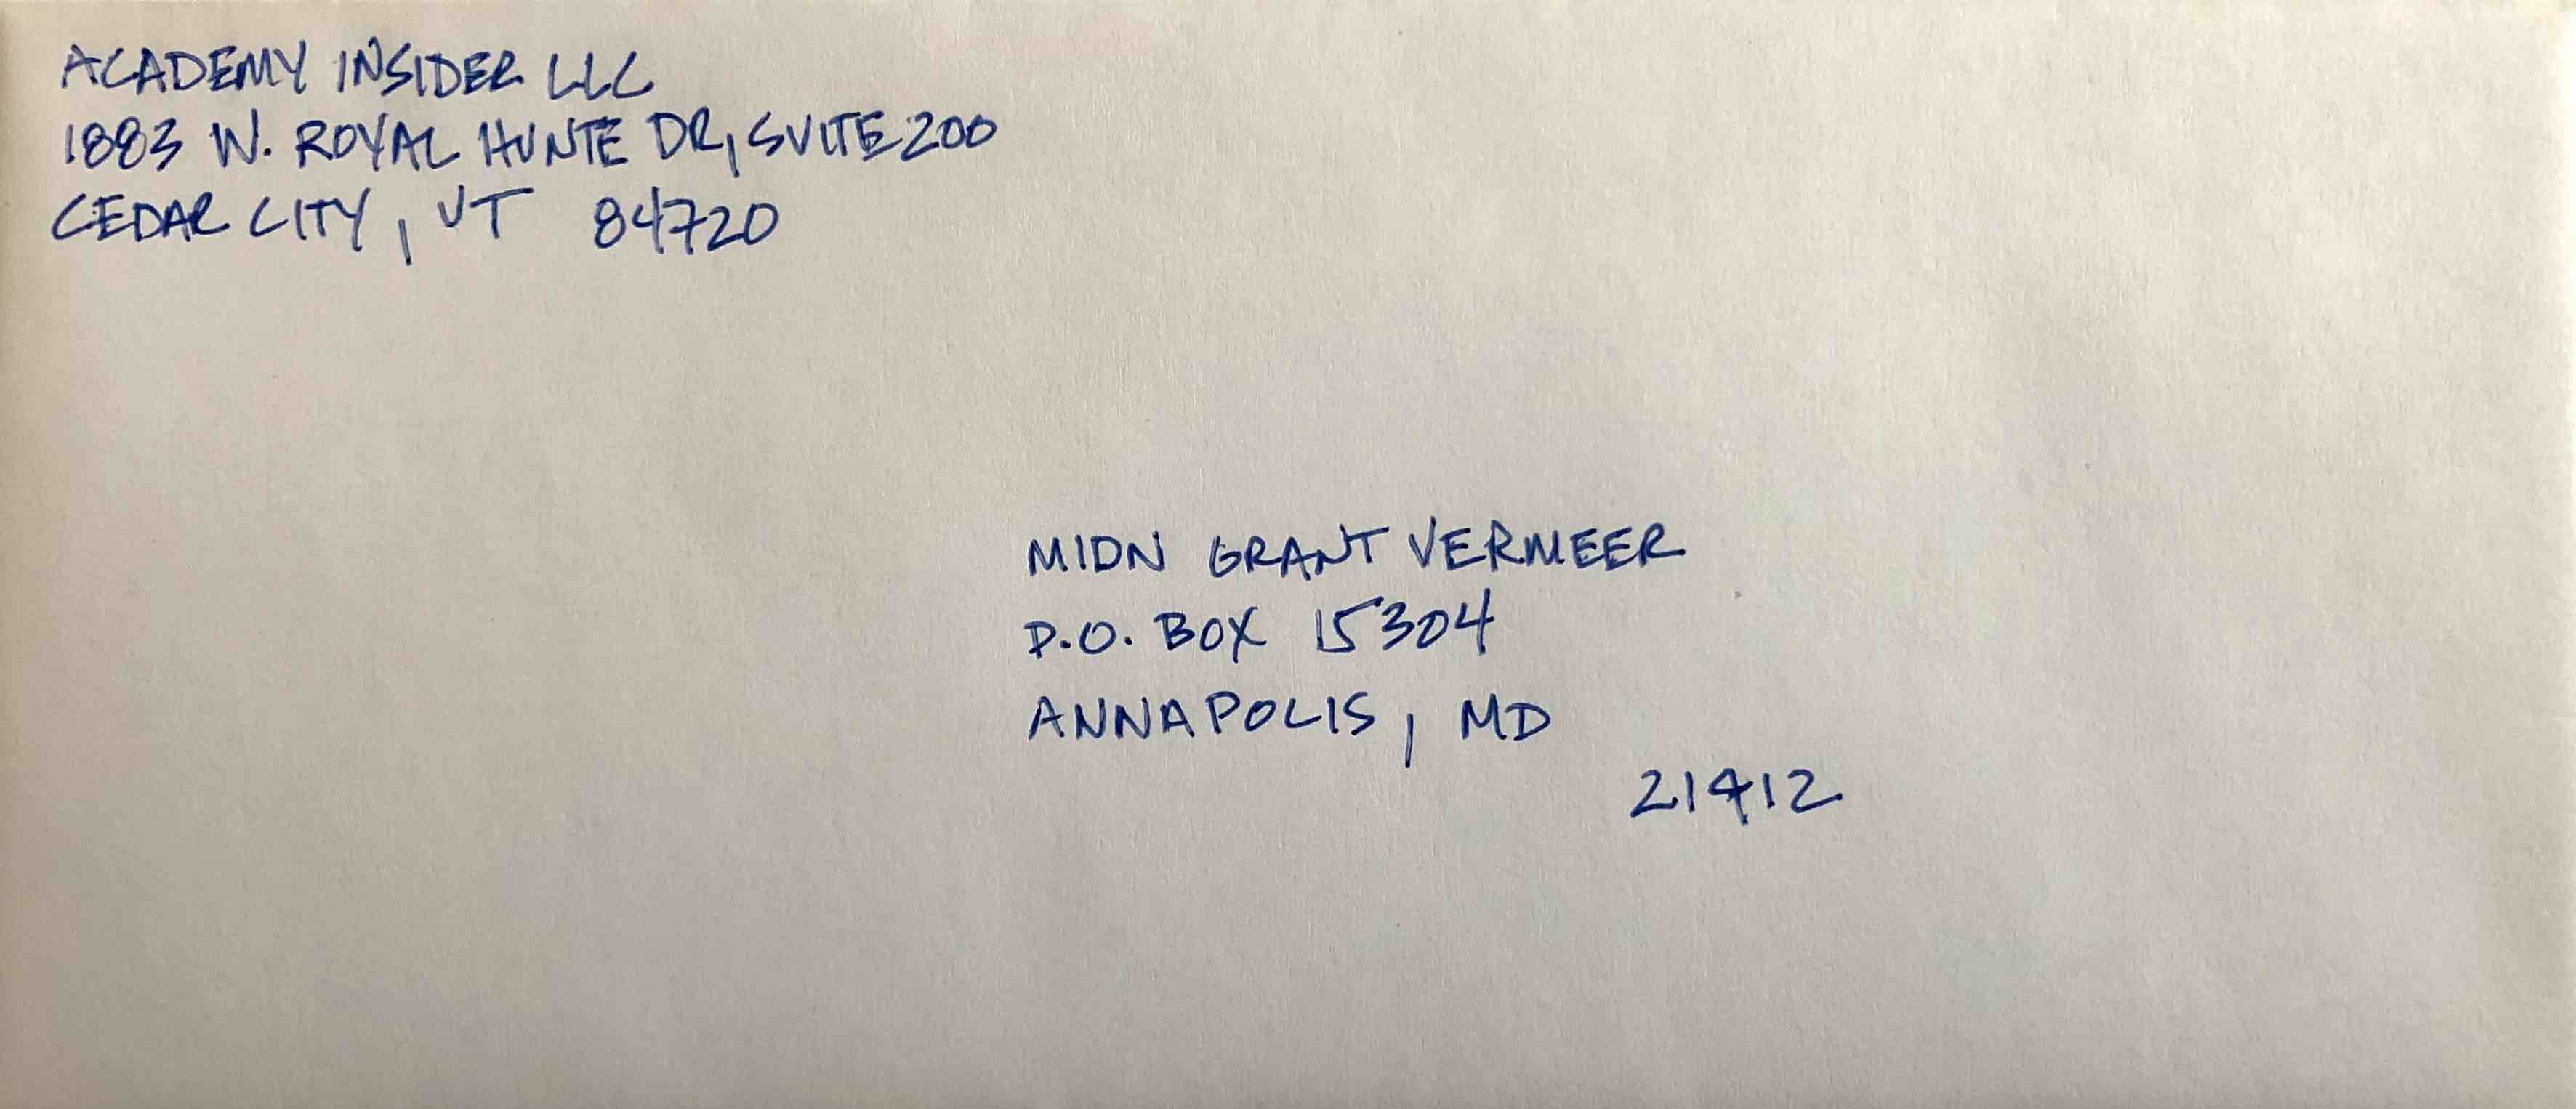 ACADEMY INSIDER LLC
1883 W. ROYAL HUNTE DR, SUITE 200
CEDAR CITY, UT 84720
MIDN GRANT VERMEER
P.O. BOX 15304
ANNAPOLIS, MD
21412